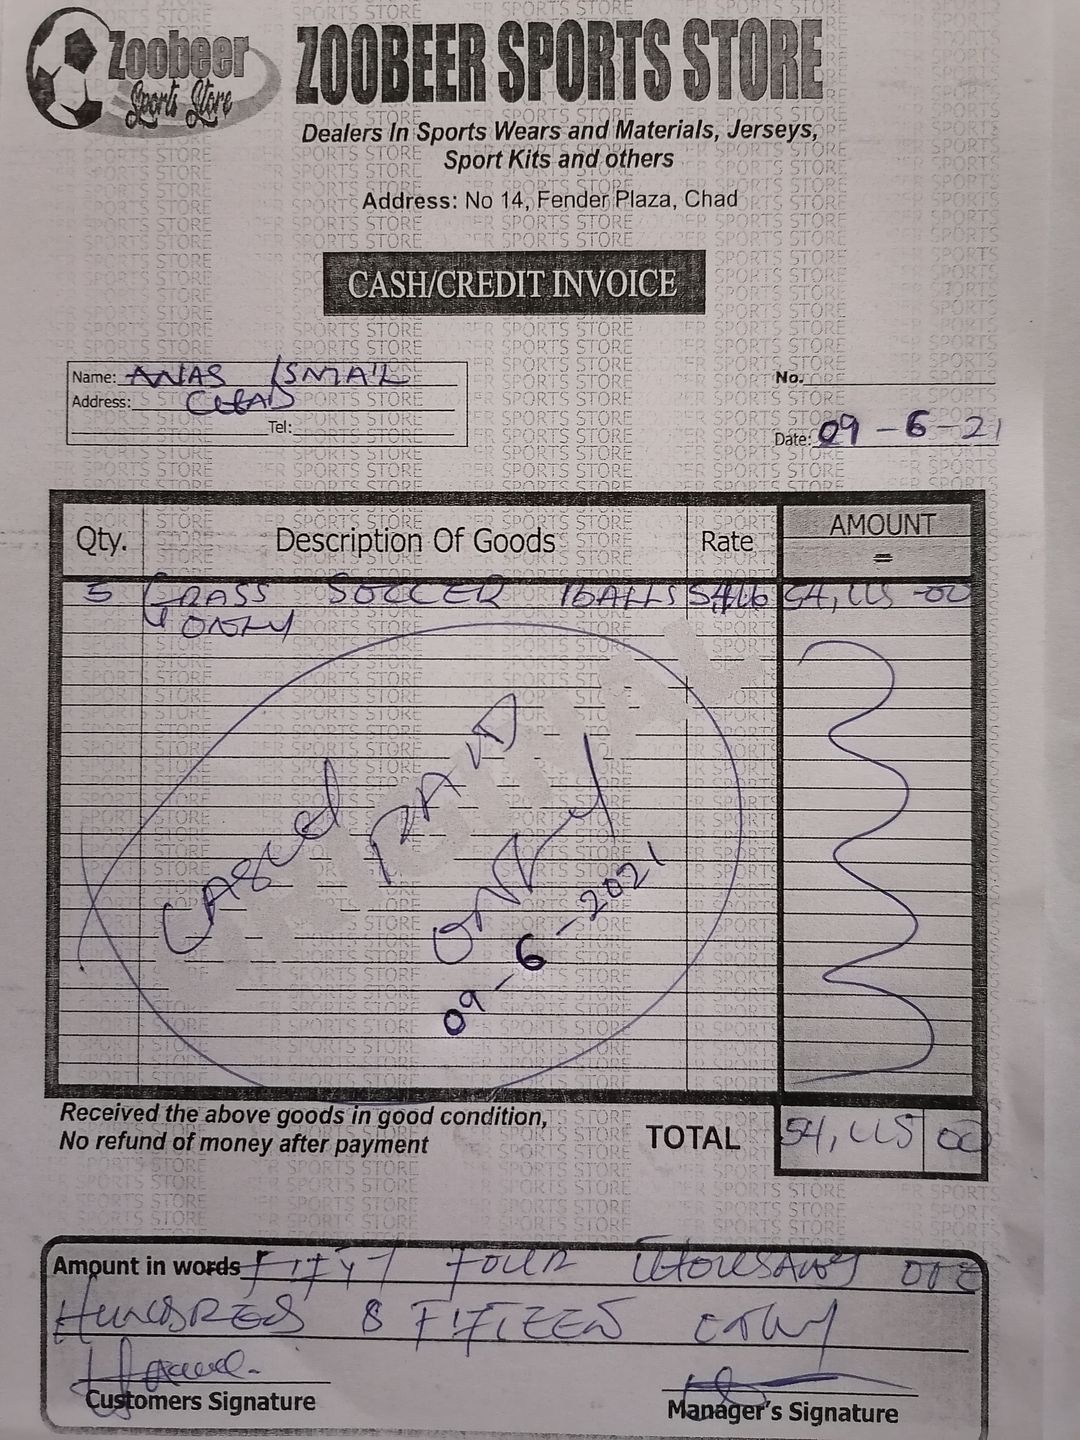 Zoobeer
Sports Store
ZOOBEER SPORTS STORE
Dealers In Sports Wears and Materials, Jerseys,
Sport Kits and others
Address: No 14, Fender Plaza, Chad
CASH/CREDIT INVOICE
Name: ANAS ISMAIL
Address: CHAD
Tel:
No.
Date: 09-6-21
Qty. Description Of Goods Rate AMOUNT
=
5 GRASS SOCCER BALLS 54,115 00
ONLY
CASH PAID
ONLY
09-6-2021
Received the above goods in good condition,
No refund of money after payment
TOTAL 54,115 00
Amount in words FIFTY FOUR THOUSAND ONE
HUNDRED & FIFTEEN ONLY
Customers Signature
Manager's Signature